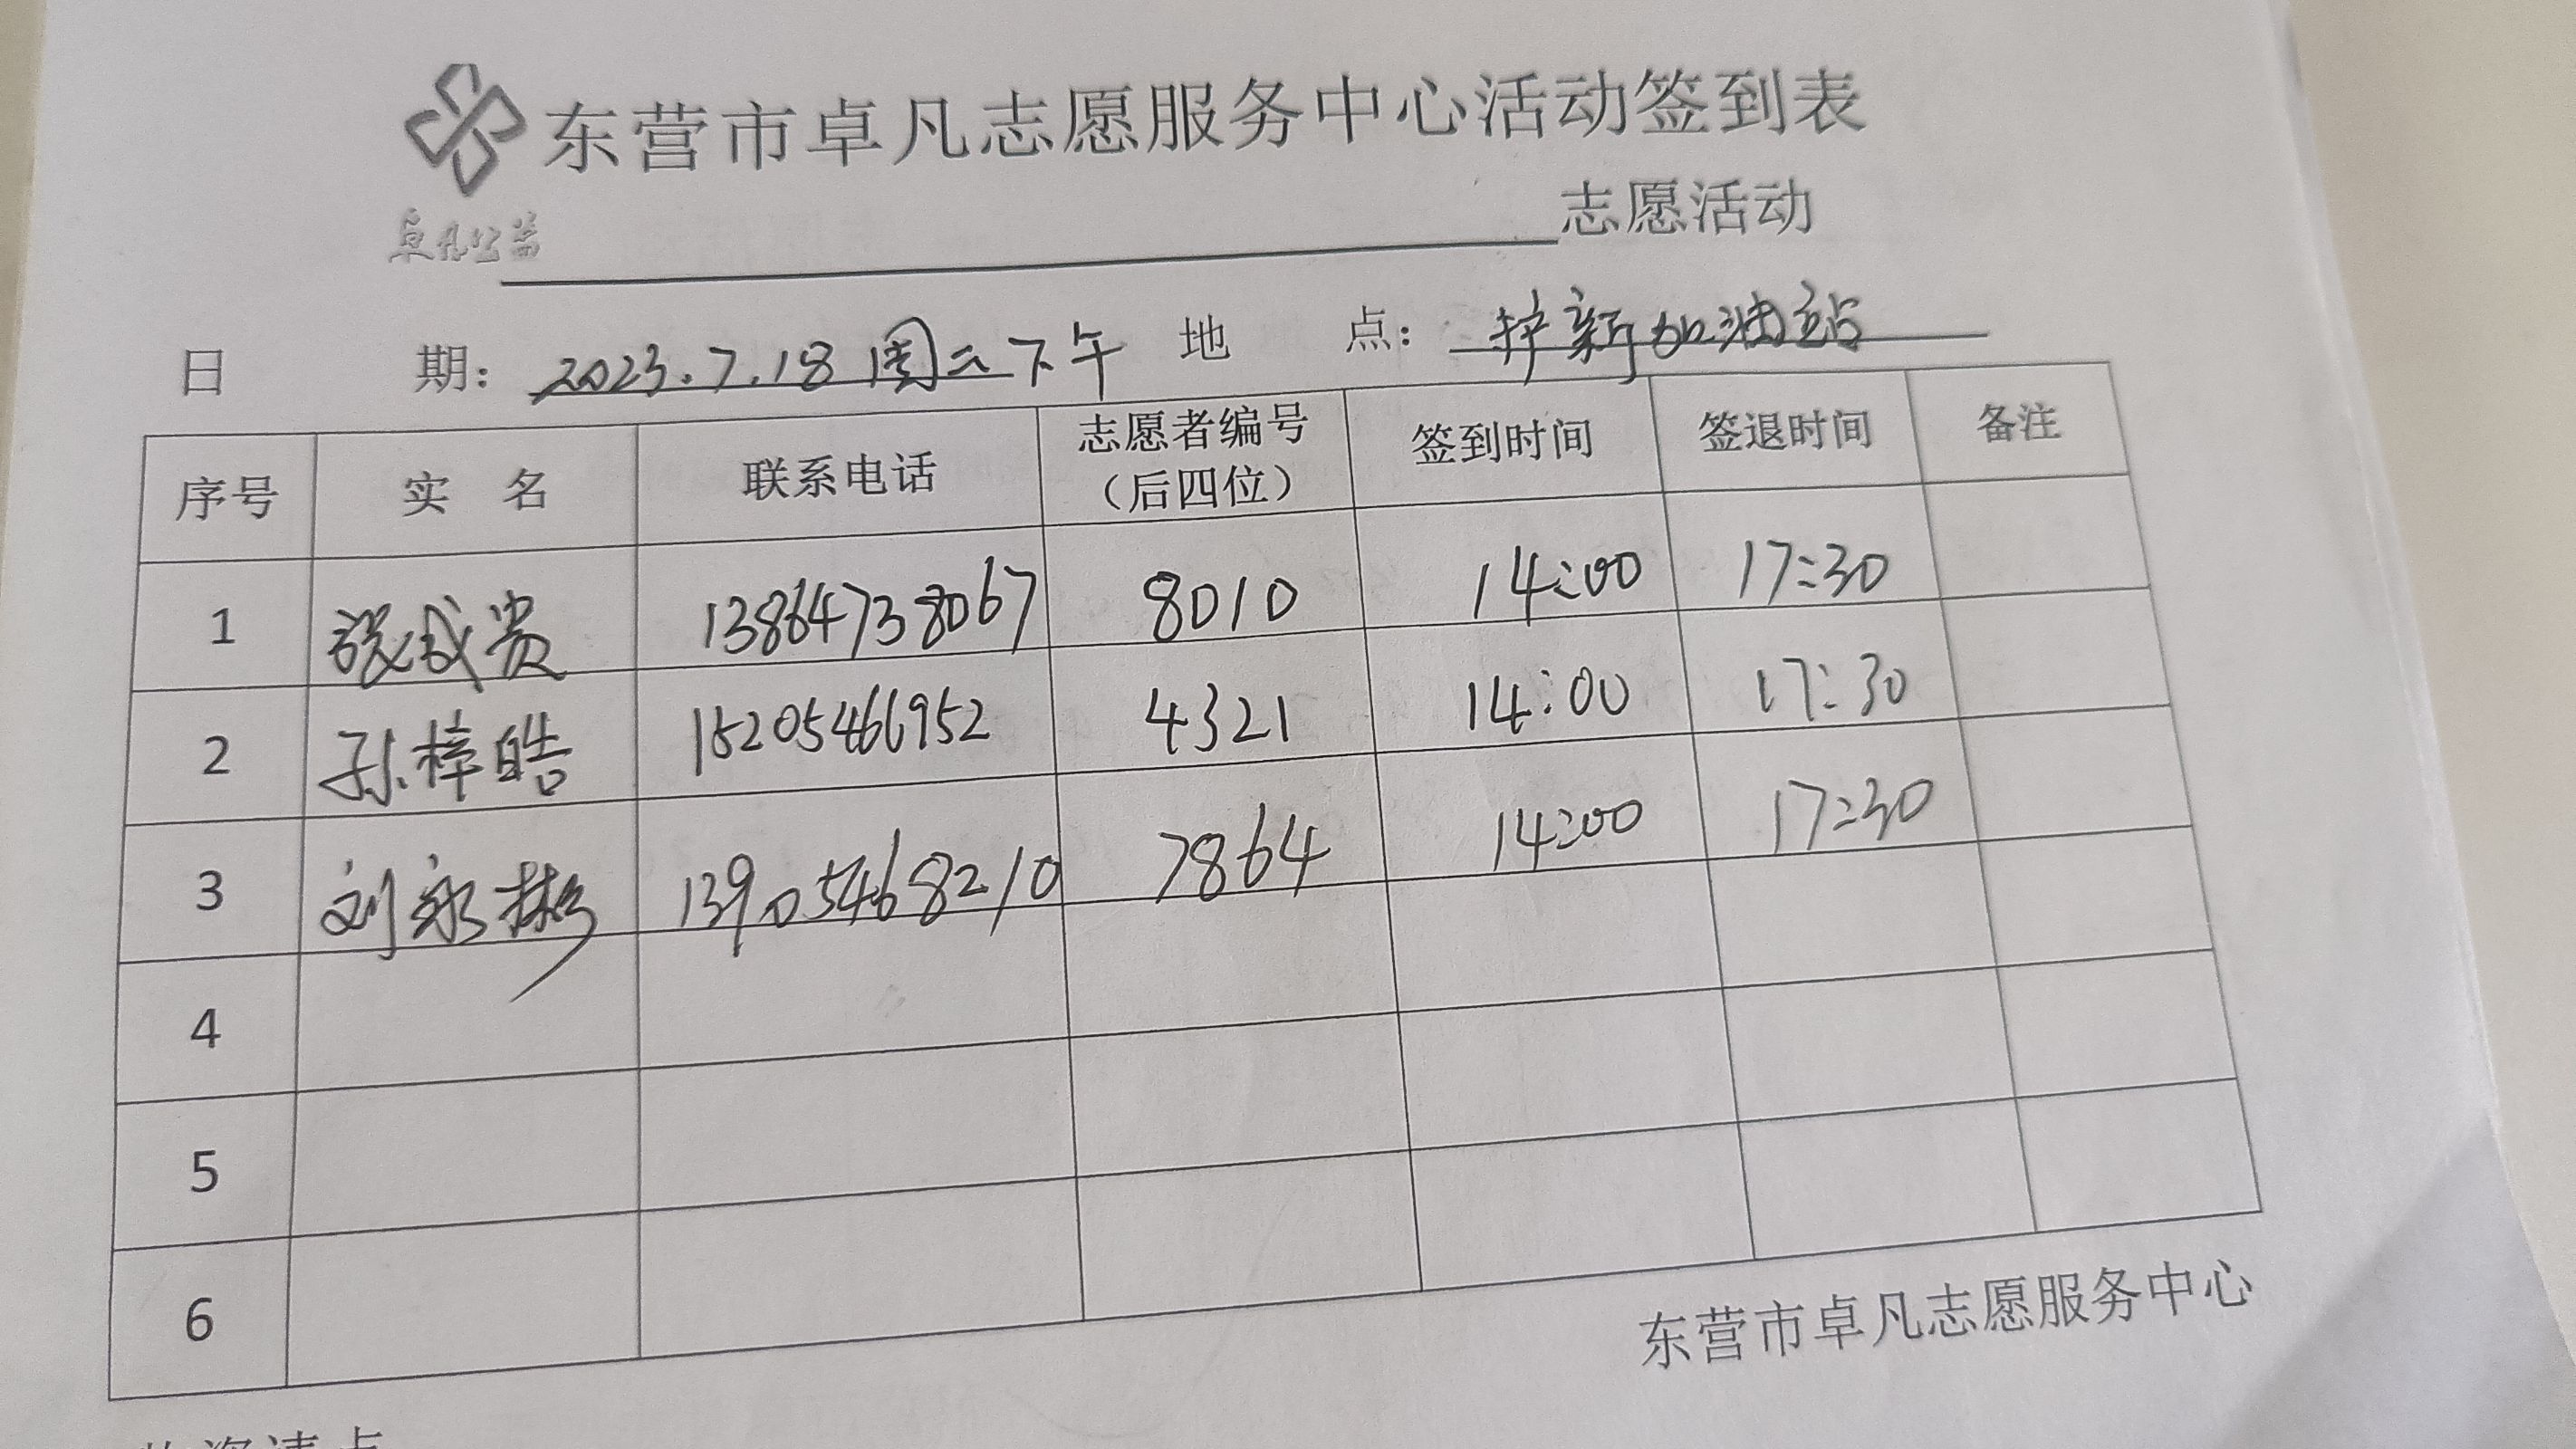 东营市卓凡志愿服务中心活动签到表
卓凡公益
志愿活动
日 期：2023.7.18 周二下午 地 点：护新加油站
序号 实 名 联系电话 志愿者编号（后四位） 签到时间 签退时间 备注
1 张成贵 13864738067 8010 14:00 17:30
2 孙梓皓 15205466952 4321 14:00 17:30
3 刘永彬 13905468210 7864 14:00 17:30
4
5
6
东营市卓凡志愿服务中心